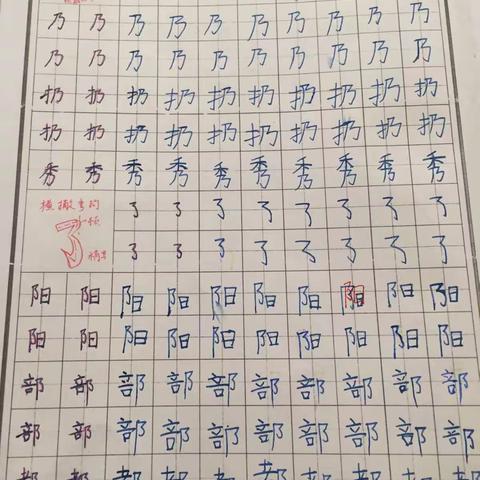 乃乃乃乃乃乃乃乃乃乃
乃乃乃乃乃乃乃乃乃乃
扔扔扔扔扔扔扔扔扔扔
扔扔扔扔扔扔扔扔扔扔
秀秀秀秀秀秀秀秀秀秀
横撇弯钩 ㇌㇌㇌㇌㇌㇌㇌㇌
㇌㇌㇌㇌㇌㇌㇌㇌
阳阳阳阳阳阳阳阳阳阳
阳阳阳阳阳阳阳阳阳阳
部部部部部部部部部部
部部部部部部部部部部